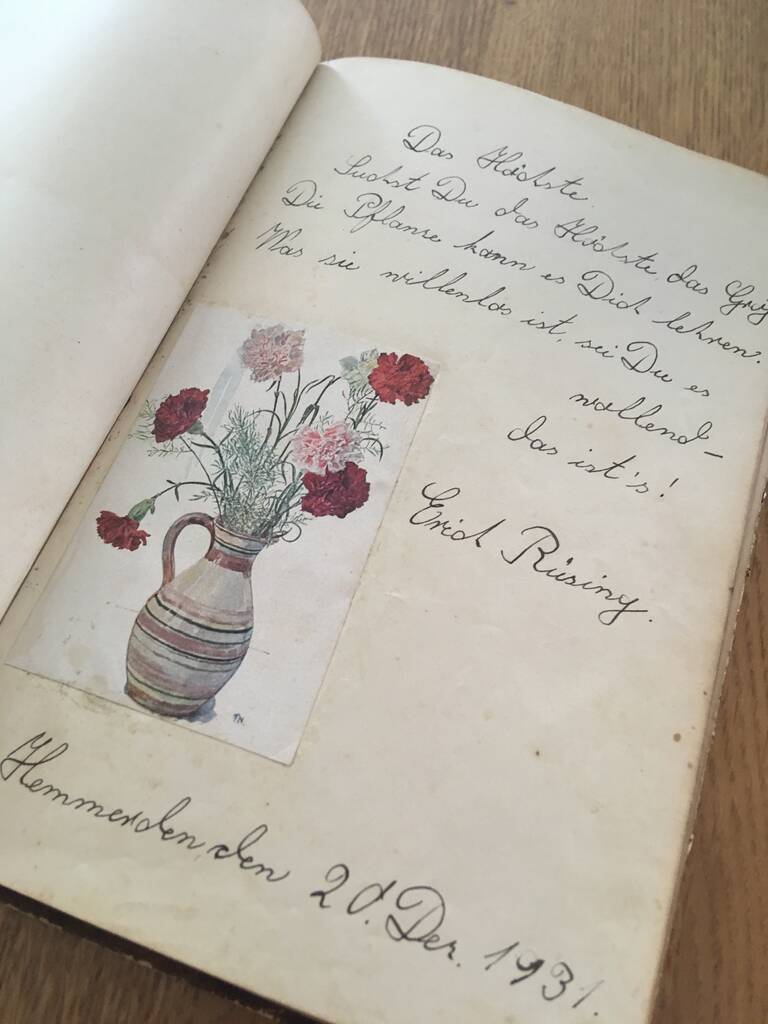 Das Höchste.
Suchst Du das Höchste, das Grö
Die Pflanze kann es Dich lehren.
Was sie willenlos ist, sei Du es
wollend–
das ist's!
Erich Rüsing.
TN.
Hemmerden, den 20. Dez. 1931.